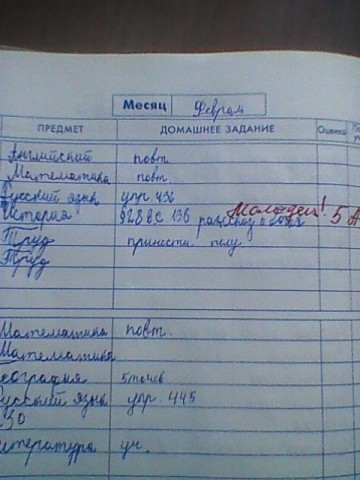 Месяц Феврам
ПРЕДМЕТ ДОМАШНЕЕ ЗАДАНИЕ Оценка
Английский повт.
Математика повт.
Русский язык упр. 436
История §28 ВС 136 рассказ о Молодец! 5
Труд принести полу
Труд
Математика повт.
Математика
География
Русский язык упр. 445
ИЗО
Литература уч.